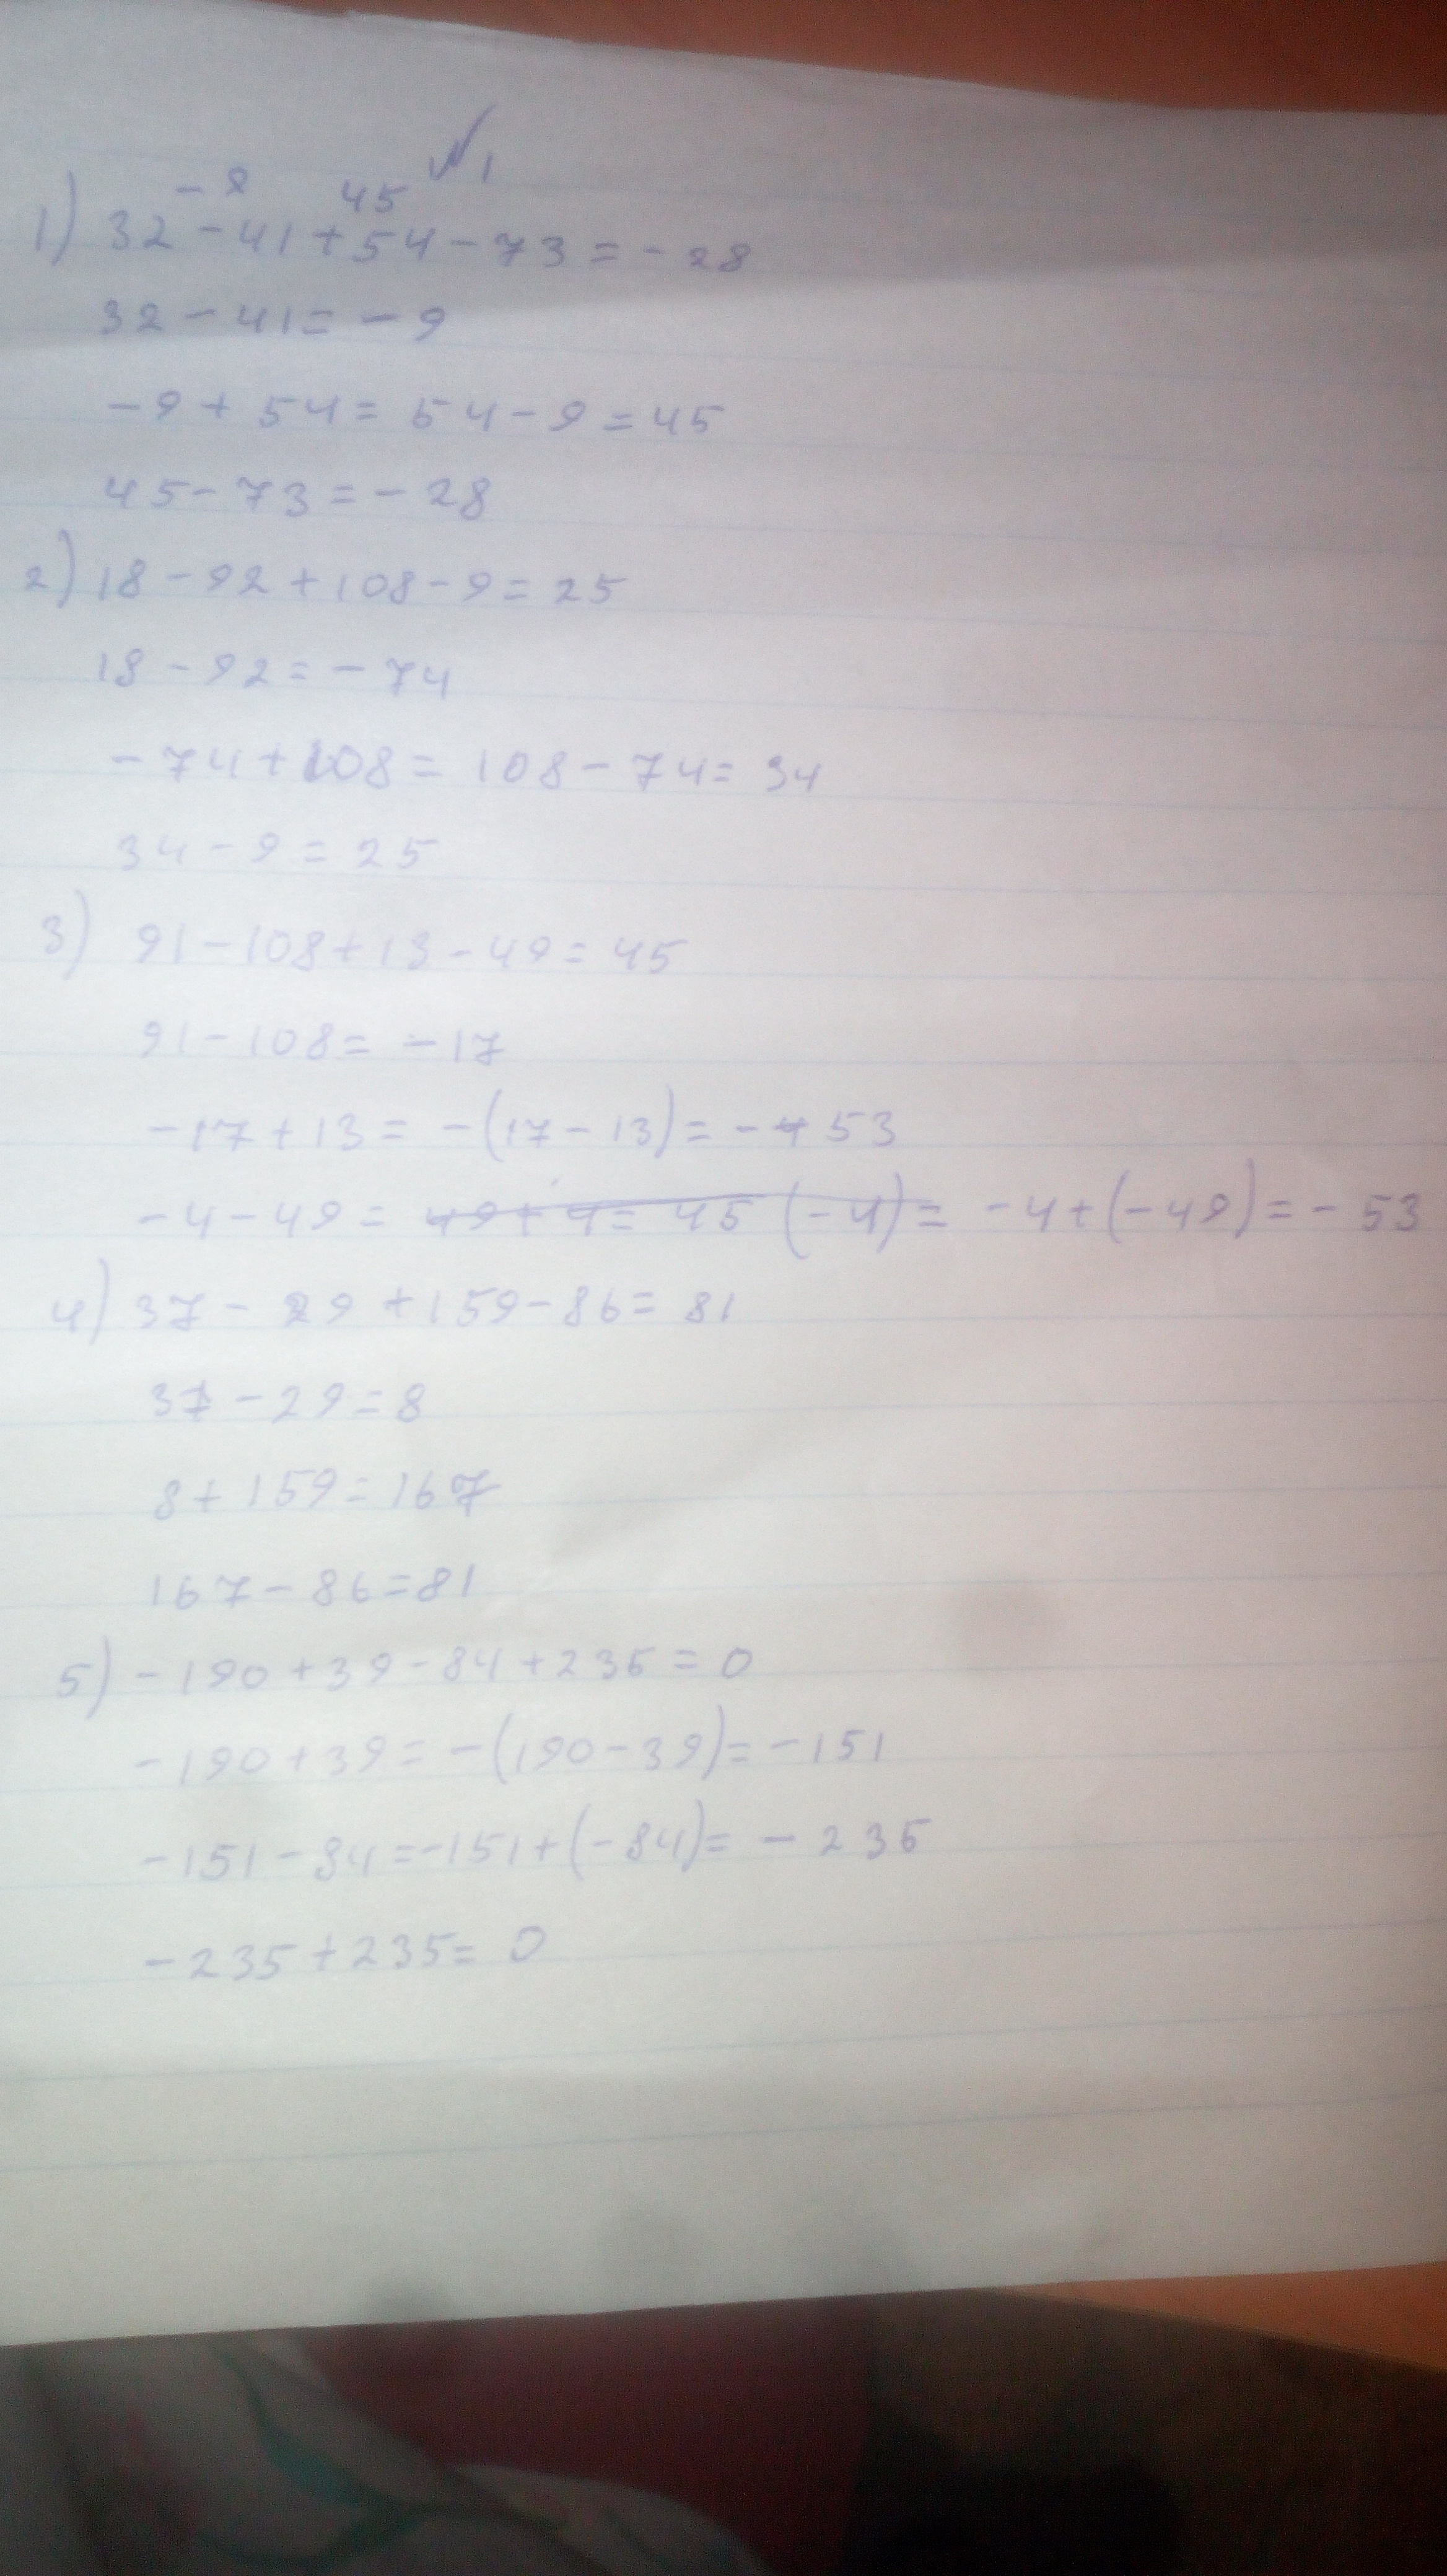 №1
-9 45
1) 32-41+54-73=-28
32-41=-9
-9+54=54-9=45
45-73=-28
2) 18-92+108-9=25
18-92=-74
-74+108=108-74=34
34-9=25
3) 91-108+13-49=45
91-108=-17
-17+13=-(17-13)=-4 53
-4-49= 49+4= 45 (-4)= -4+(-49)=-53
4) 37-29+159-86=81
37-29=8
8+159=167
167-86=81
5) -190+39-84+235=0
-190+39=-(190-39)=-151
-151-84=-151+(-84)=-235
-235+235=0